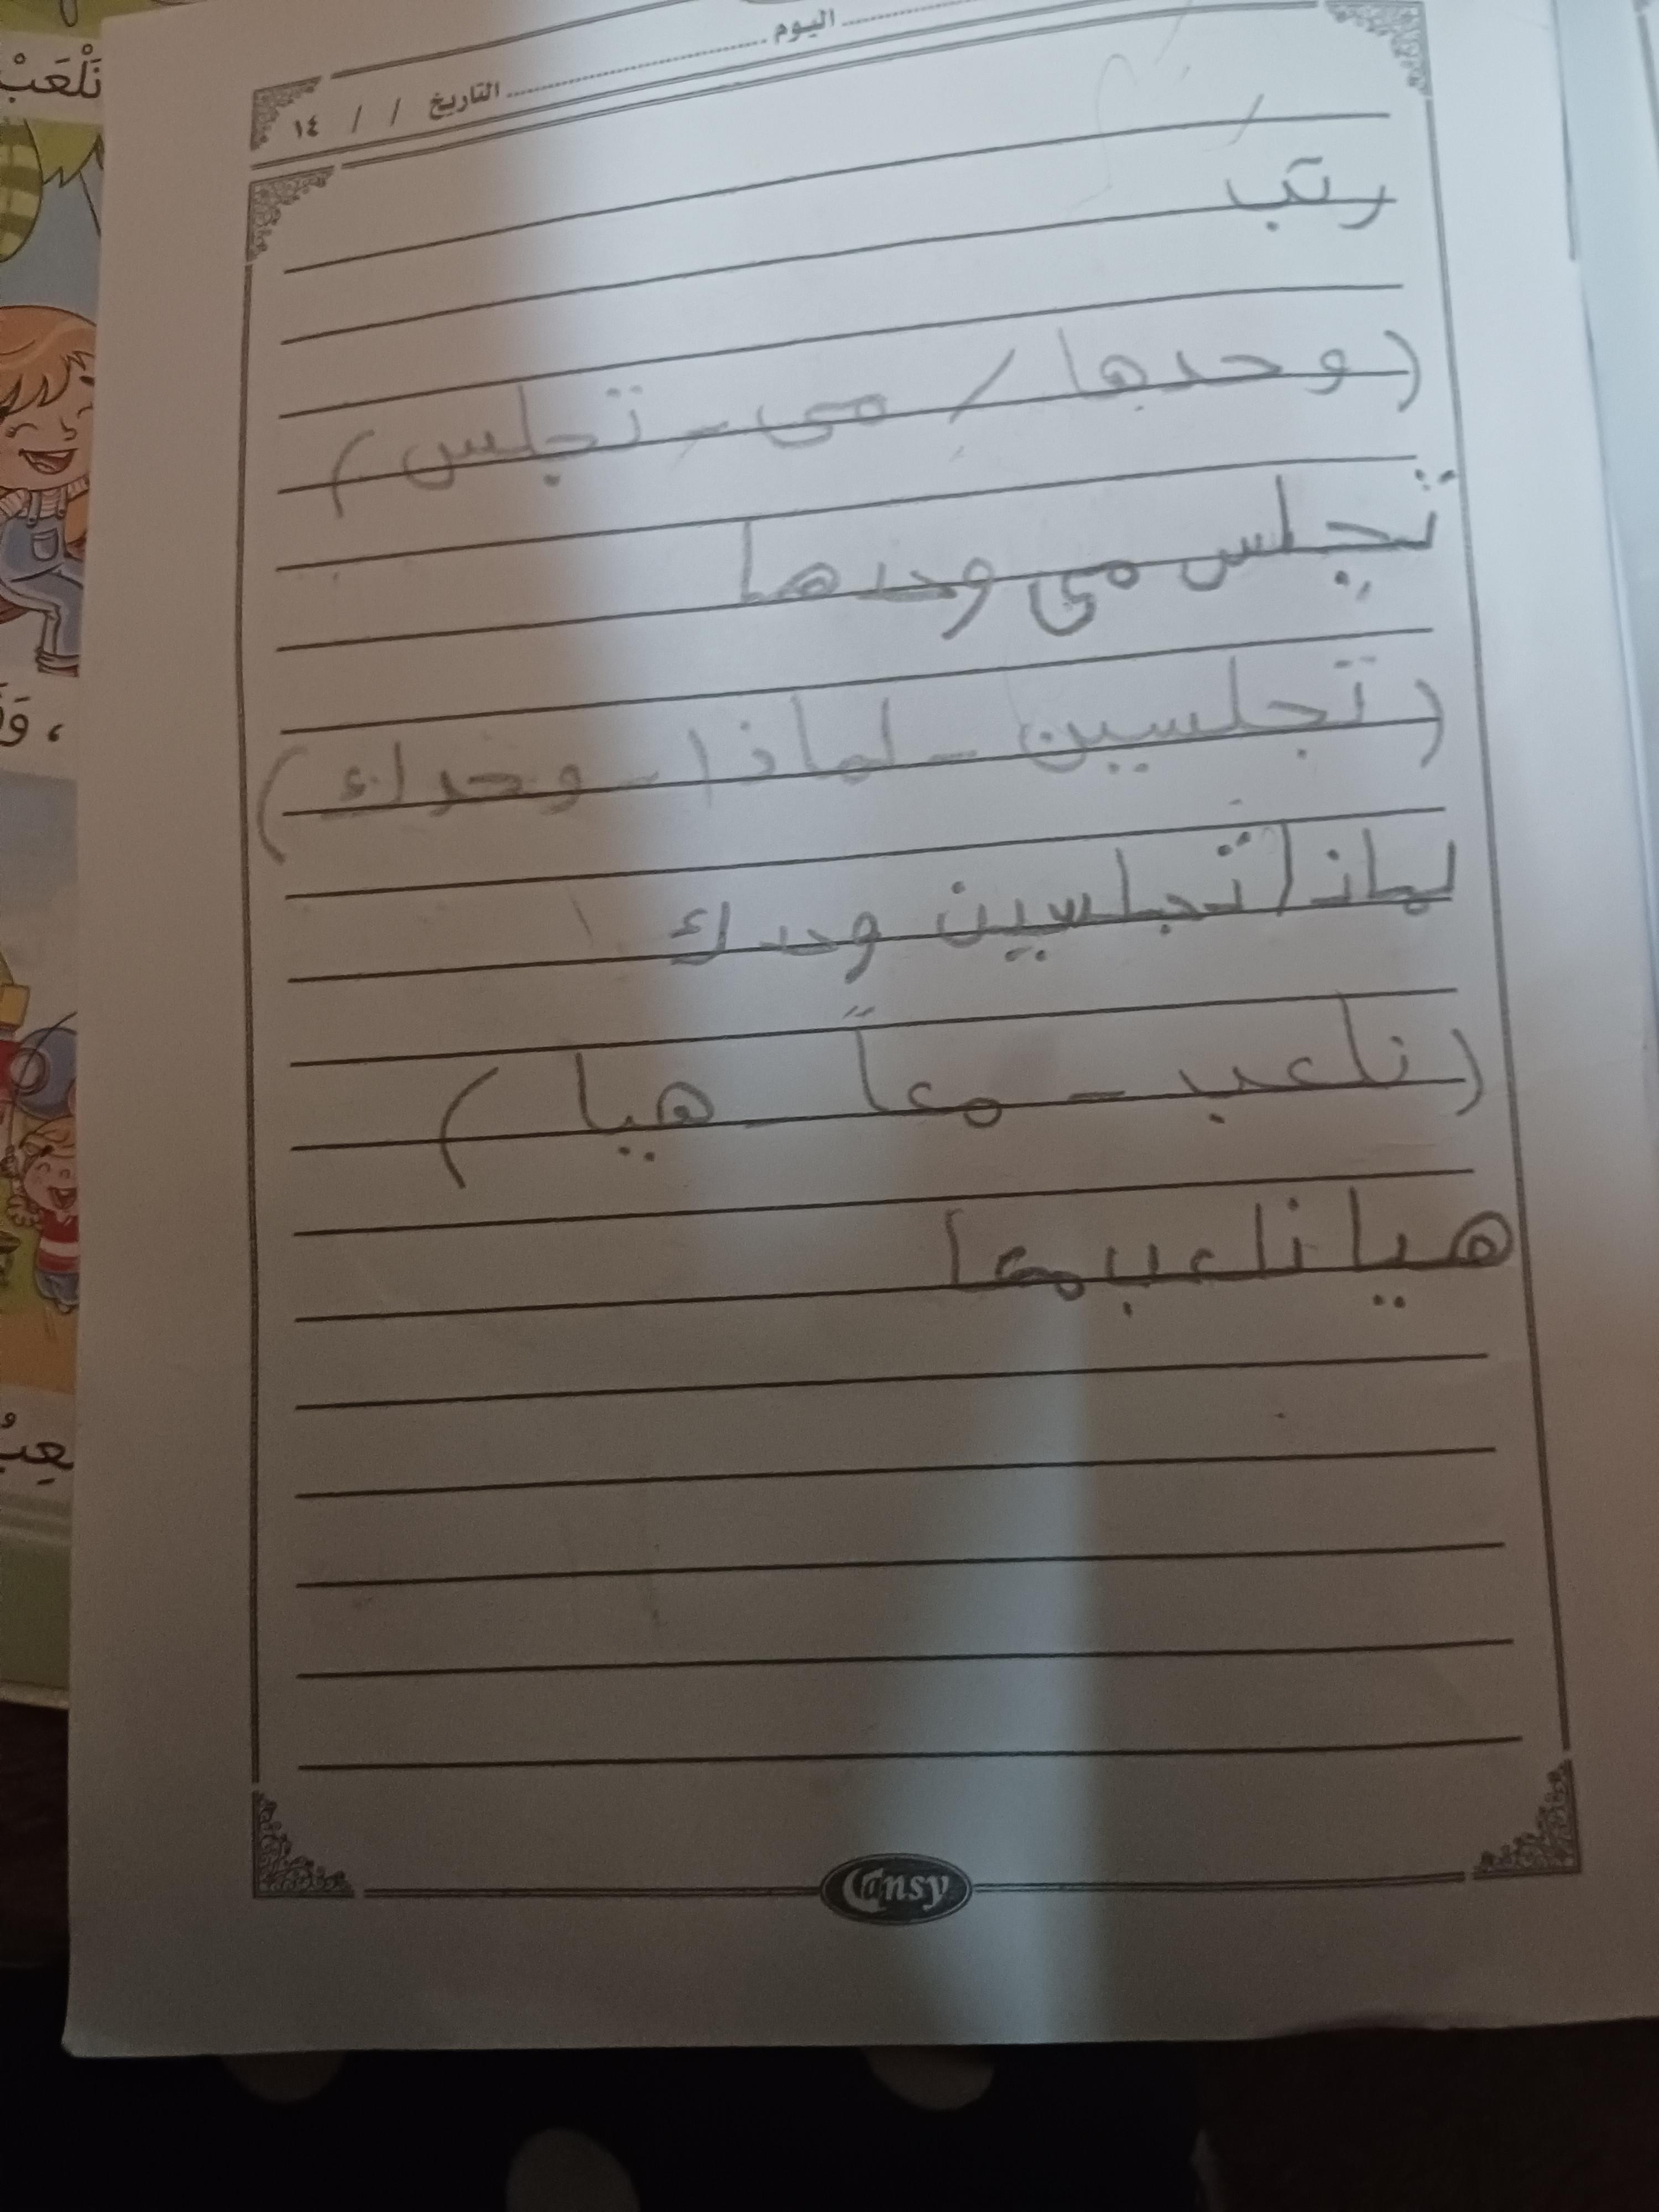 اليوم
التاريخ / / ١٤
رتب
(وحدها / مى - تجلس)
تجلس مى وحدها
(تجلسين - لماذا - وحدك)
لماذا تجلسين وحدك
(نلعب - معاً - هيا)
هيا نلعب معا
Cansy
نَلْعَبْ